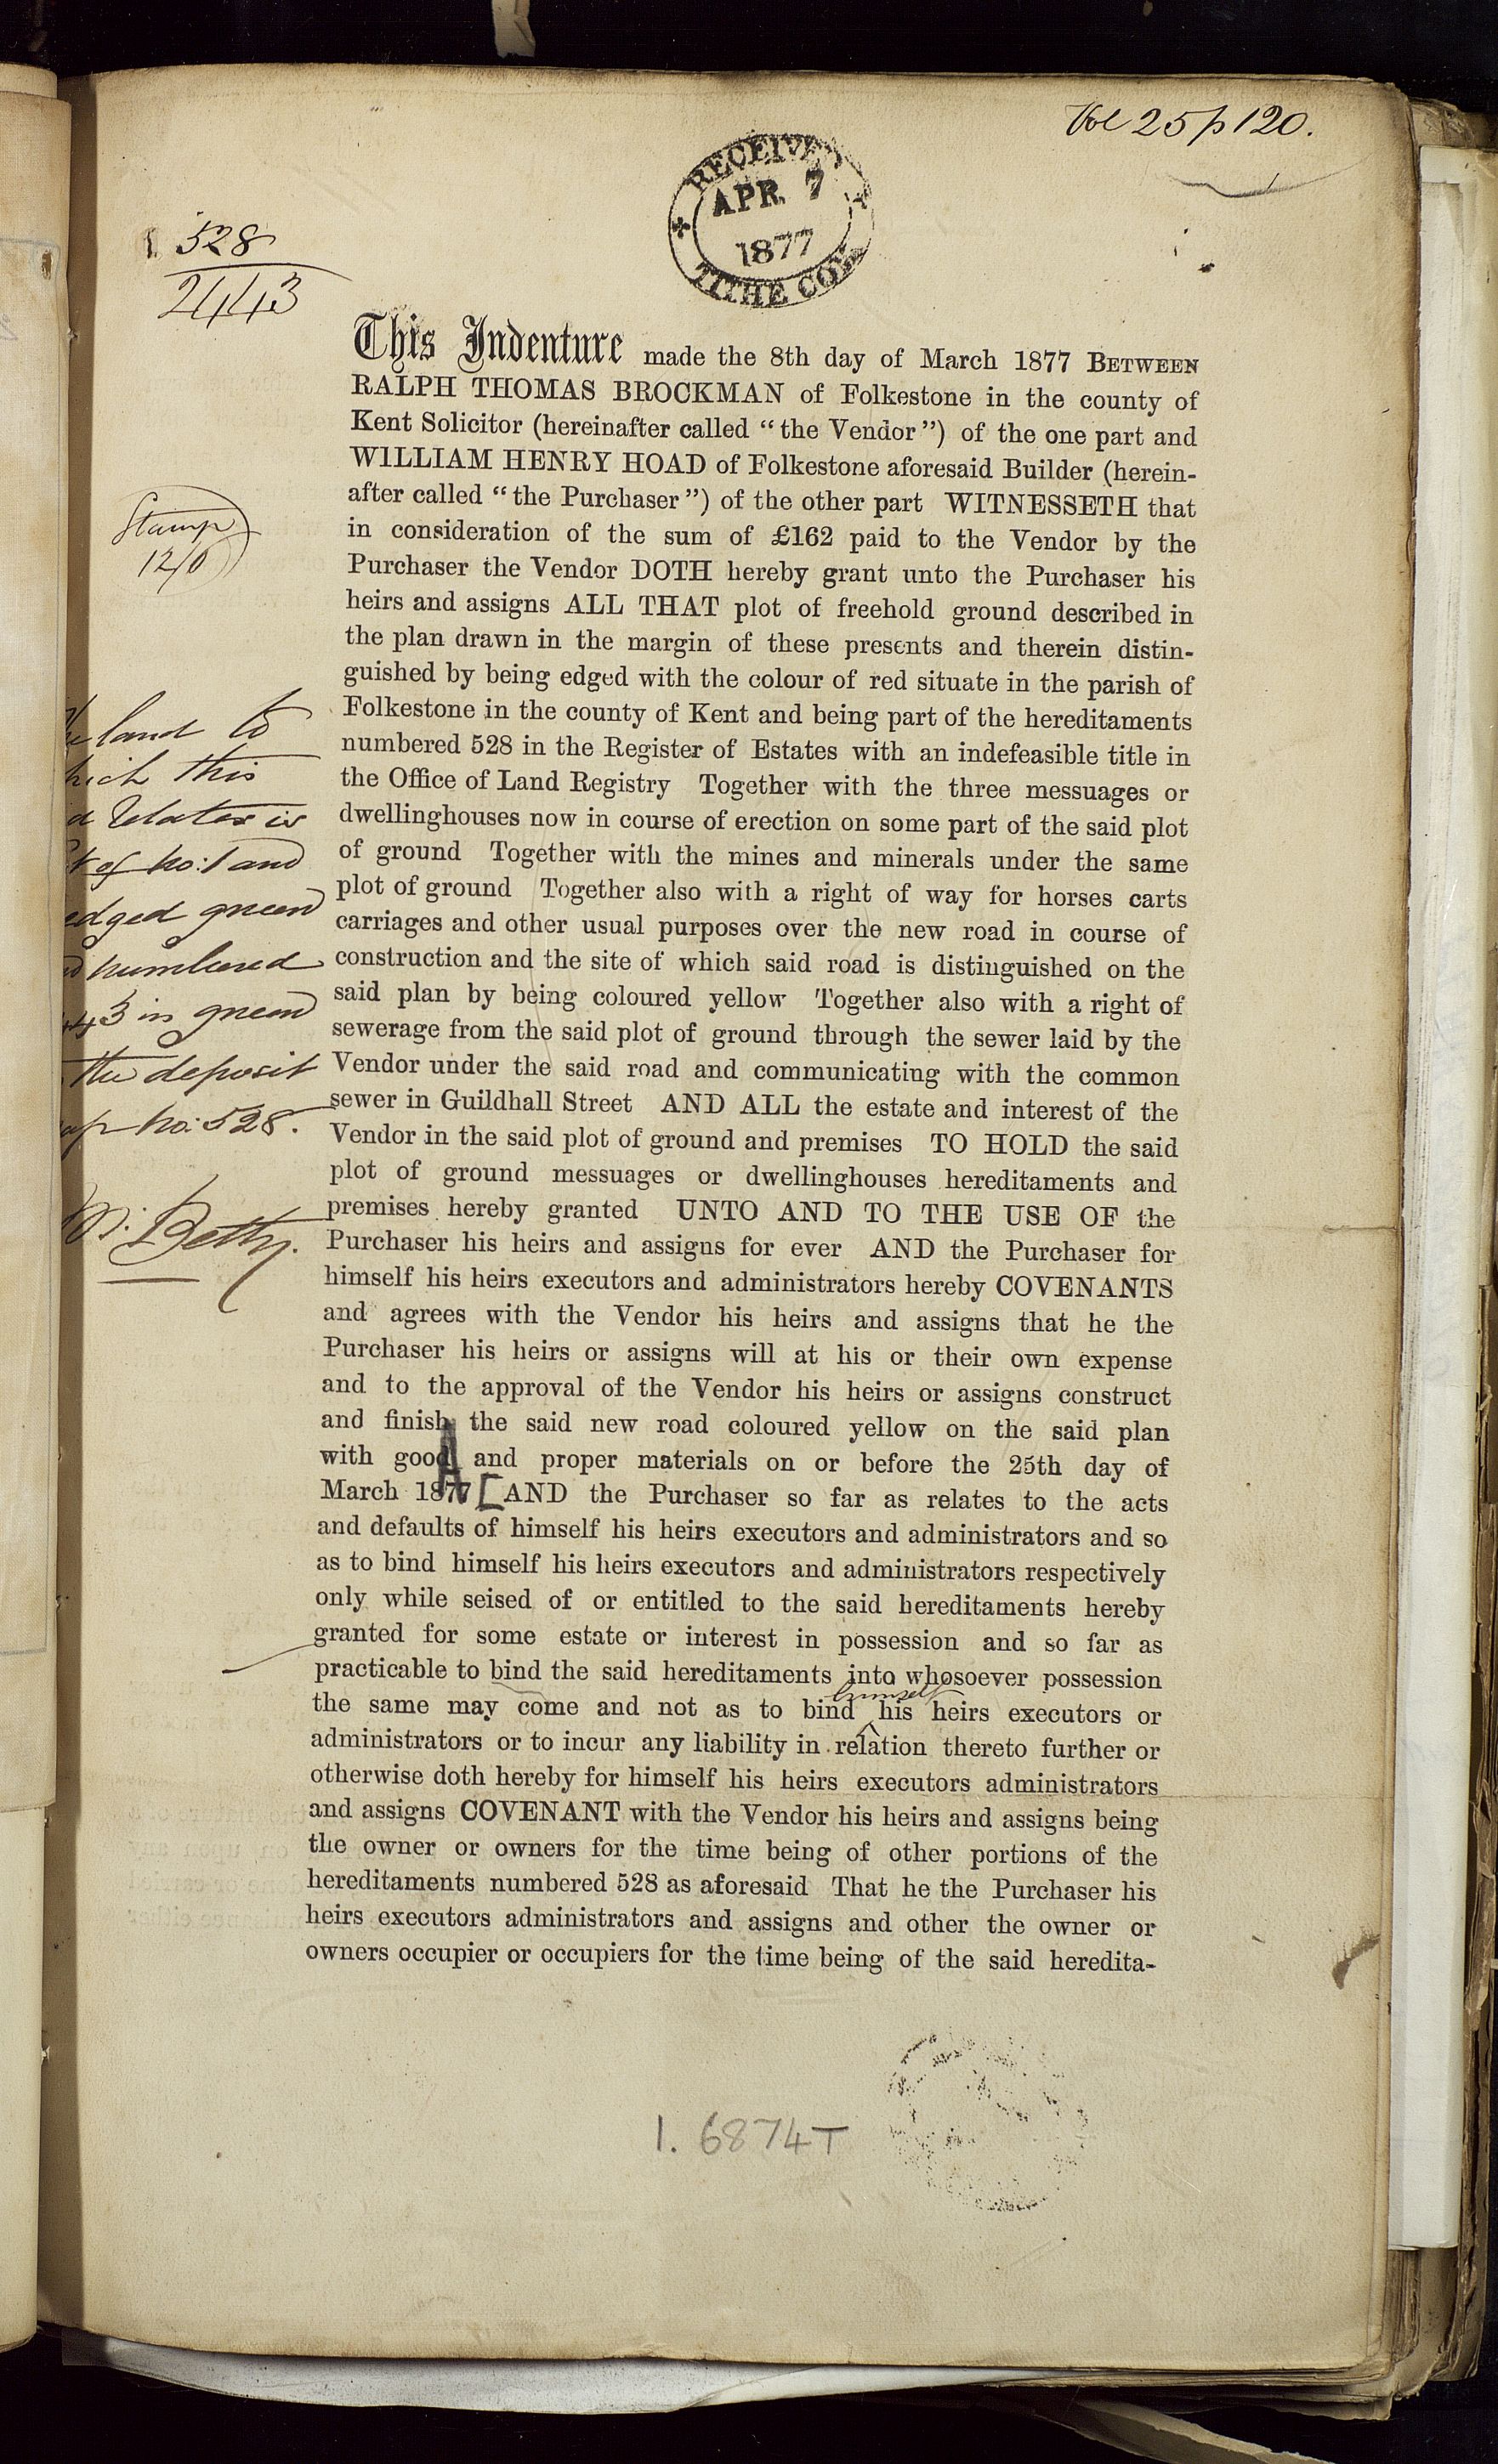 Vol 25 p 120.
RECEIVED
APR. 7
1877
TITHE COM
528
2443
This Indenture made the 8th day of March 1877 BETWEEN
RALPH THOMAS BROCKMAN of Folkestone in the county of
Kent Solicitor (hereinafter called “the Vendor”) of the one part and
WILLIAM HENRY HOAD of Folkestone aforesaid Builder (herein-
after called “the Purchaser”) of the other part WITNESSETH that
in consideration of the sum of £162 paid to the Vendor by the
Purchaser the Vendor DOTH hereby grant unto the Purchaser his
heirs and assigns ALL THAT plot of freehold ground described in
the plan drawn in the margin of these presents and therein distin-
guished by being edged with the colour of red situate in the parish of
Folkestone in the county of Kent and being part of the hereditaments
numbered 528 in the Register of Estates with an indefeasible title in
the Office of Land Registry Together with the three messuages or
dwellinghouses now in course of erection on some part of the said plot
of ground Together with the mines and minerals under the same
plot of ground Together also with a right of way for horses carts
carriages and other usual purposes over the new road in course of
construction and the site of which said road is distinguished on the
said plan by being coloured yellow Together also with a right of
sewerage from the said plot of ground through the sewer laid by the
Vendor under the said road and communicating with the common
sewer in Guildhall Street AND ALL the estate and interest of the
Vendor in the said plot of ground and premises TO HOLD the said
plot of ground messuages or dwellinghouses hereditaments and
premises hereby granted UNTO AND TO THE USE OF the
Purchaser his heirs and assigns for ever AND the Purchaser for
himself his heirs executors and administrators hereby COVENANTS
and agrees with the Vendor his heirs and assigns that he the
Purchaser his heirs or assigns will at his or their own expense
and to the approval of the Vendor his heirs or assigns construct
and finish the said new road coloured yellow on the said plan
with good and proper materials on or before the 25th day of
March 1877 [AND the Purchaser so far as relates to the acts
and defaults of himself his heirs executors and administrators and so
as to bind himself his heirs executors and administrators respectively
only while seised of or entitled to the said hereditaments hereby
granted for some estate or interest in possession and so far as
practicable to bind the said hereditaments into whosoever possession
himself
the same may come and not as to bind his heirs executors or
administrators or to incur any liability in relation thereto further or
otherwise doth hereby for himself his heirs executors administrators
and assigns COVENANT with the Vendor his heirs and assigns being
the owner or owners for the time being of other portions of the
hereditaments numbered 528 as aforesaid That he the Purchaser his
heirs executors administrators and assigns and other the owner or
owners occupier or occupiers for the time being of the said heredita-
Stamp
12/6
land to
this
relates is
of No: 1 and
edged green
numbered
43 in green
the deposit
No: 528.
Betty.
1. 6874T